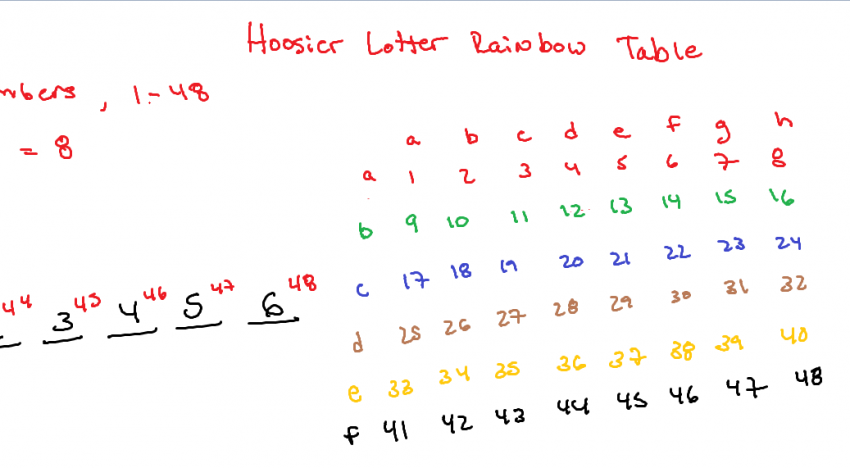 Hoosier Lotter Rainbow Table
mbers, 1-48
= 8
a b c d e f g h
a 1 2 3 4 5 6 7 8
b 9 10 11 12 13 14 15 16
c 17 18 19 20 21 22 23 24
d 25 26 27 28 29 30 31 32
e 33 34 35 36 37 38 39 40
f 41 42 43 44 45 46 47 48
44 3 45 4 46 5 47 6 48